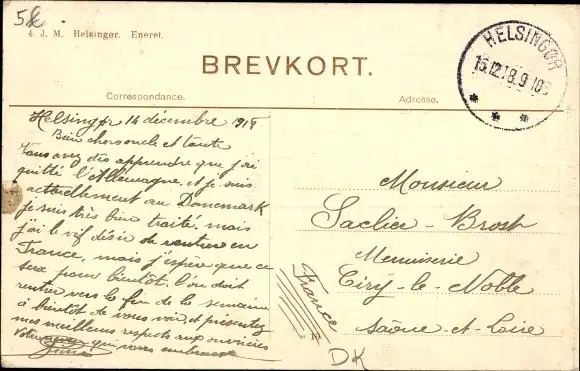 5k
4. J. M. Helsingør. Eneret.
HELSINGØR
16.12.18.9-10
BREVKORT.
Correspondance.
Adresse.
Helsingør 14 décembre 1918
Bien chers oncle et tante
Vous avez dûs apprendre que j'ai
quitté l'Allemagne, et je suis
actuellement au Danemark
je suis très bien traité, mais
j'ai le vif désir de rentrer en
France, mais j'espère que ce
sera pour bientôt. L'on doit
rentrer vers la fin de la semaine
à bientôt de vous voir, et présentez
mes meilleurs respects aux ouvrières
Votre qui vous embrasse
Monsieur
Saclier-Brost
Menuiserie
Ciry-le-Noble
Saône-et-Loire
France
DK